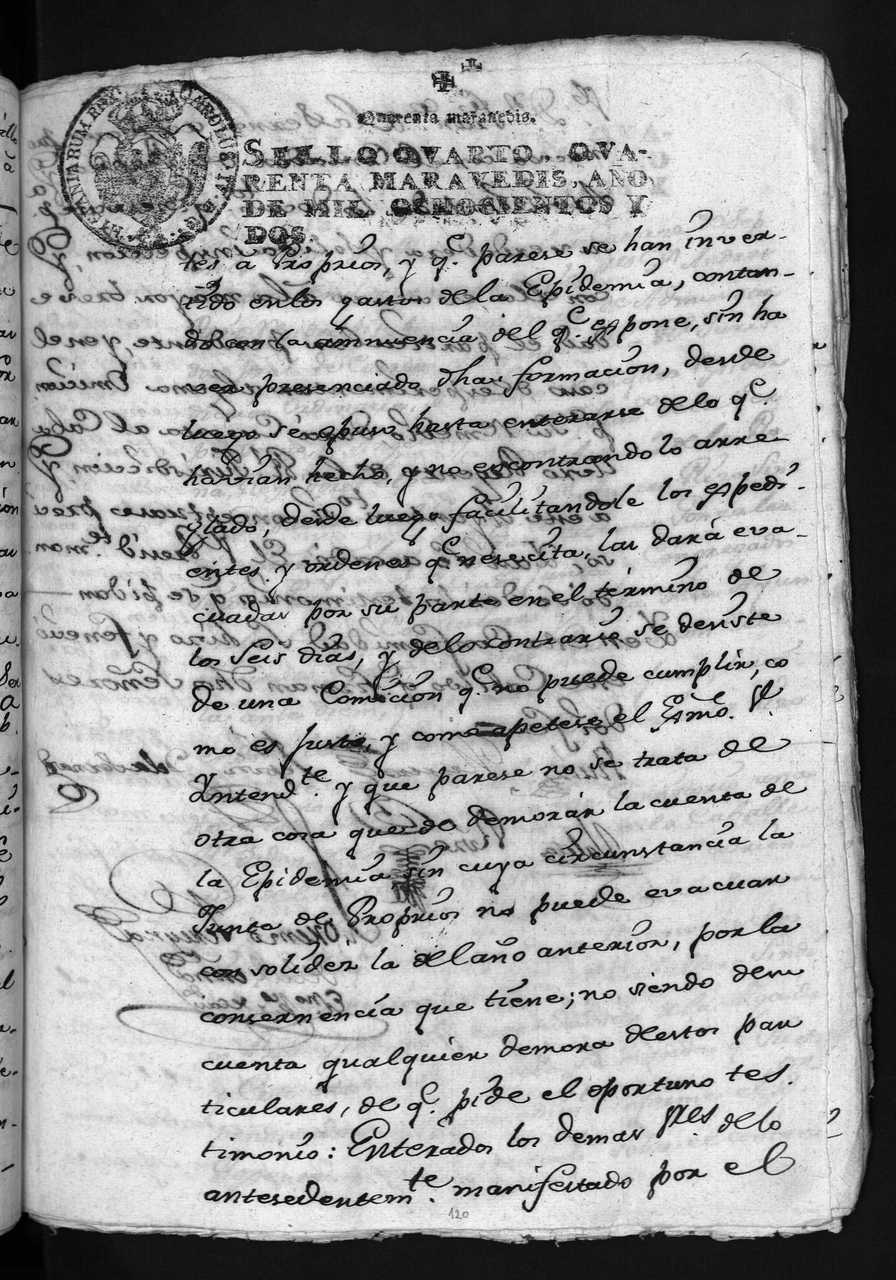 Quarenta maravedis.
SELLO QVARTO, QVA-
RENTA MARAVEDIS, AÑO
DE MIL OCHOCIENTOS Y
DOS.
tes a Proprios, y q.e parese se han inver-
tido en los gastos de la Epidemia, contan-
do con la annuencia del q.e espone, sin ha
ver presenciado dha formacion, desde
luego se opuso hasta enterarse de lo q.e
havian hecho, y no encontrandolo arre-
glado, desde luego facilitandole los espedi-
entes y ordenes q.e nesecita, las dará eva-
cuadas por su parte en el término de
los seis dias, y de lo contrario se deciste
de una Comicion q.e no puede cumplir, co
mo es justo, y como apetese el Exmo. S.or
Yntend.te y que parese no se trata de
otra cosa que de demorár la cuenta de
la Epidemia sin cuya circunstancia la
Junta de Proprios no puede evacuar
con solidez la del año anterior, por la
consernencia que tiene; no siendo de su
cuenta qualquier demora de estos par
ticulares, de q.e pide el oportuno tes-
timonio: Enterados los demas SS.res de lo
antesedentem.te manifestado por el
120